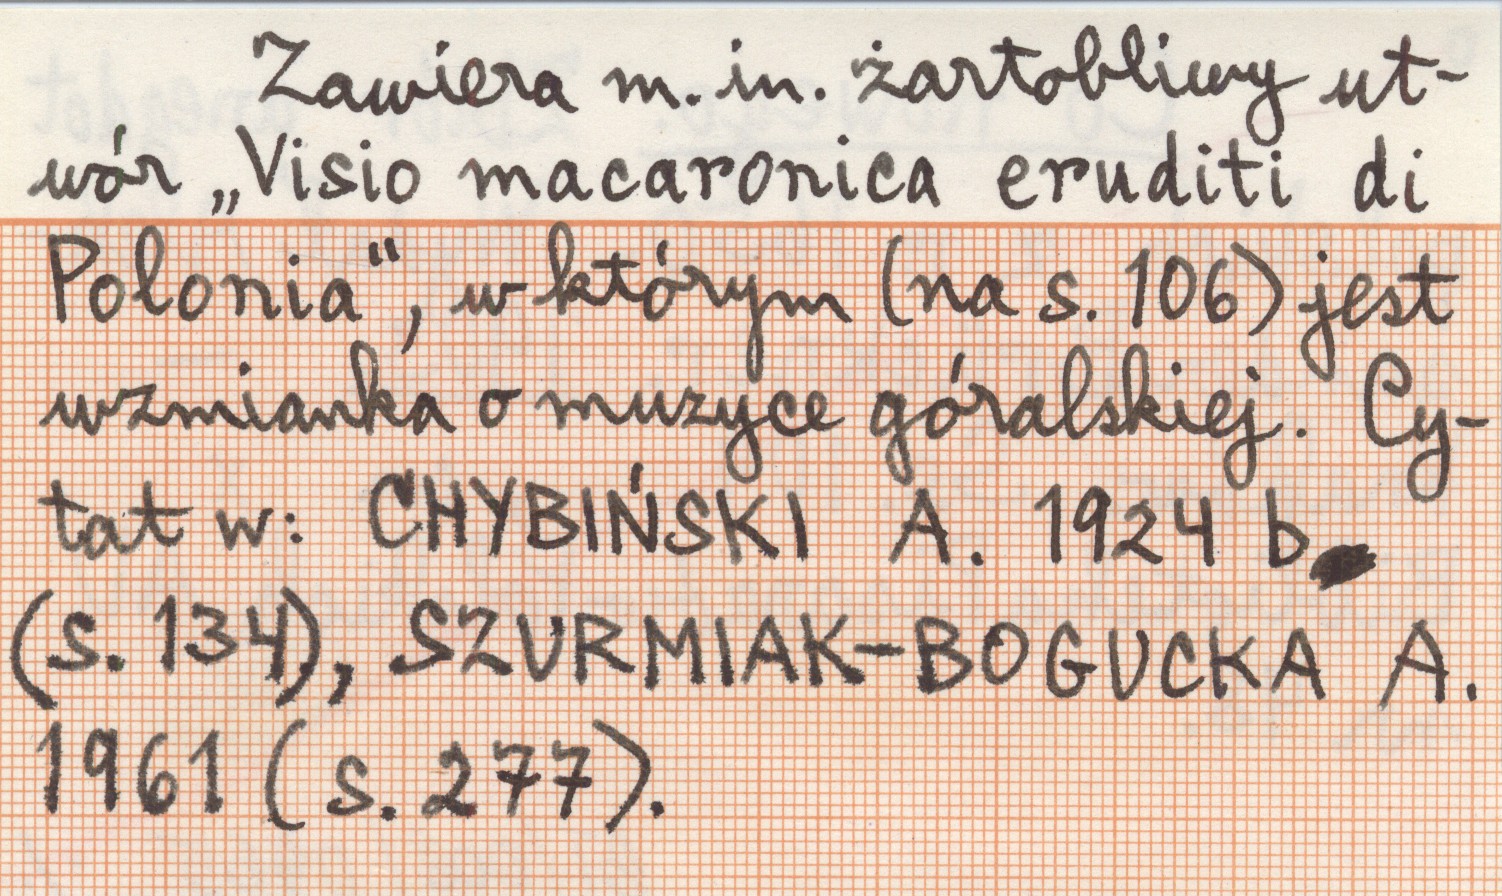 Zawiera m.in. żartobliwy ut-
wór „Visio macaronica eruditi di
Polonia“, w którym (na s. 106) jest
wzmianka o muzyce góralskiej. Cy-
tat w: CHYBIŃSKI A. 1924 b
(s. 134), SZURMIAK-BOGUCKA A.
1961 (s. 277).